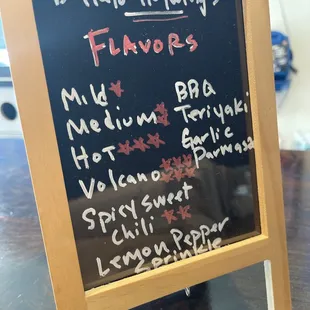 Flavors
Mild
Medium
Hot
Volcano
Spicy Sweet
Chili
Lemon Pepper
Sprinkle
BBQ
Teriyaki
Garlic